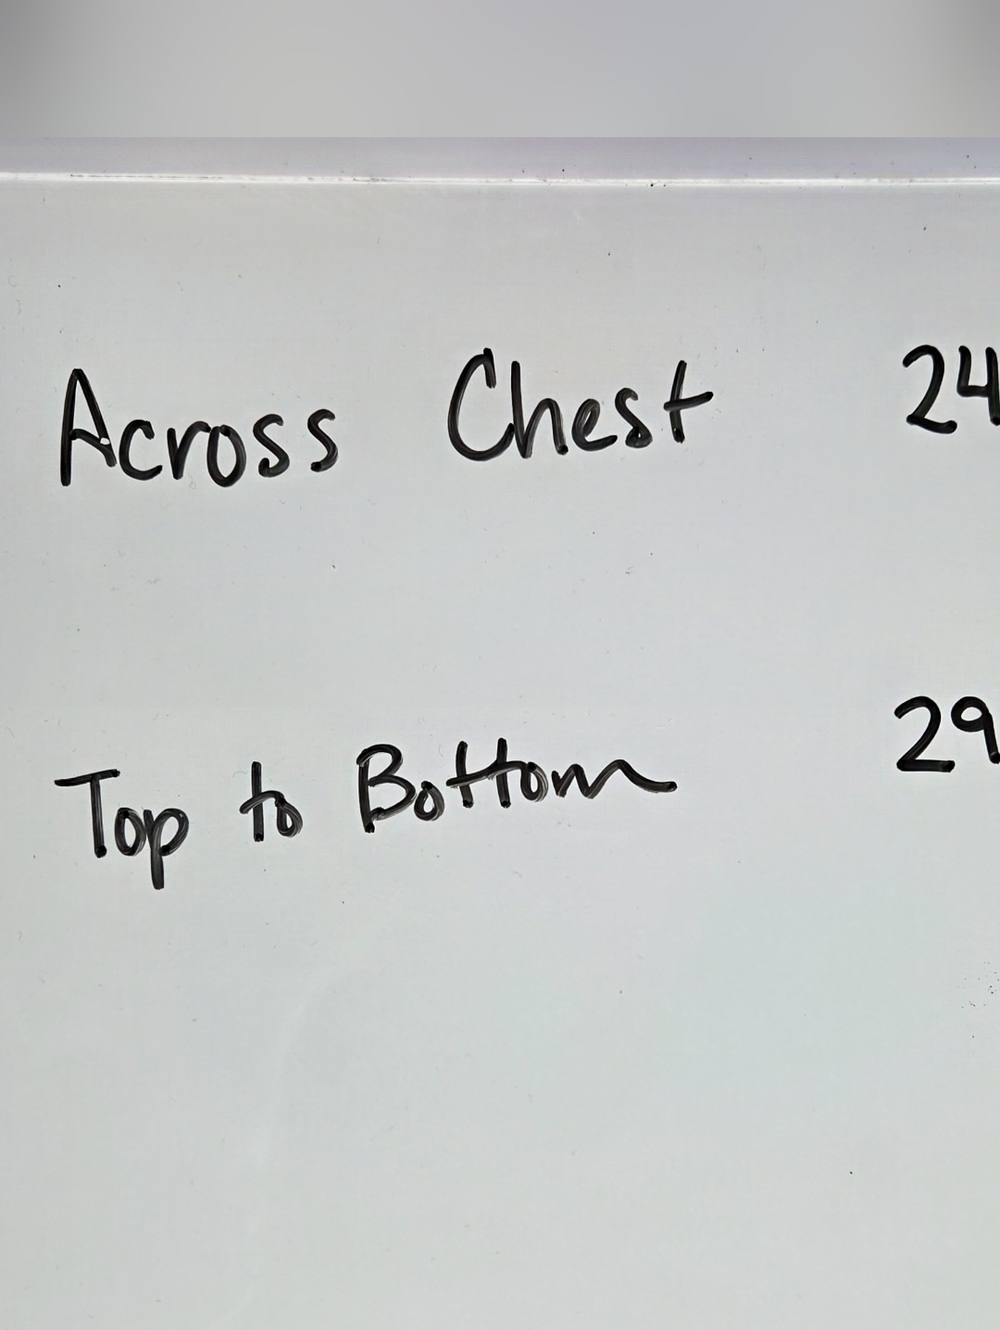 Across Chest 24
Top to Bottom 29